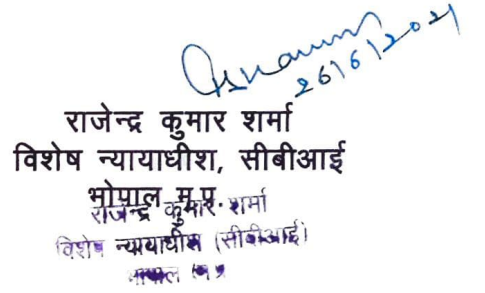 26/6/2021
राजेन्द्र कुमार शर्मा
विशेष न्यायाधीश, सीबीआई
भोपाल म.प्र.
राजेन्द्र कुमार शर्मा
विशेष न्यायाधीश (सीबीआई)
भोपाल